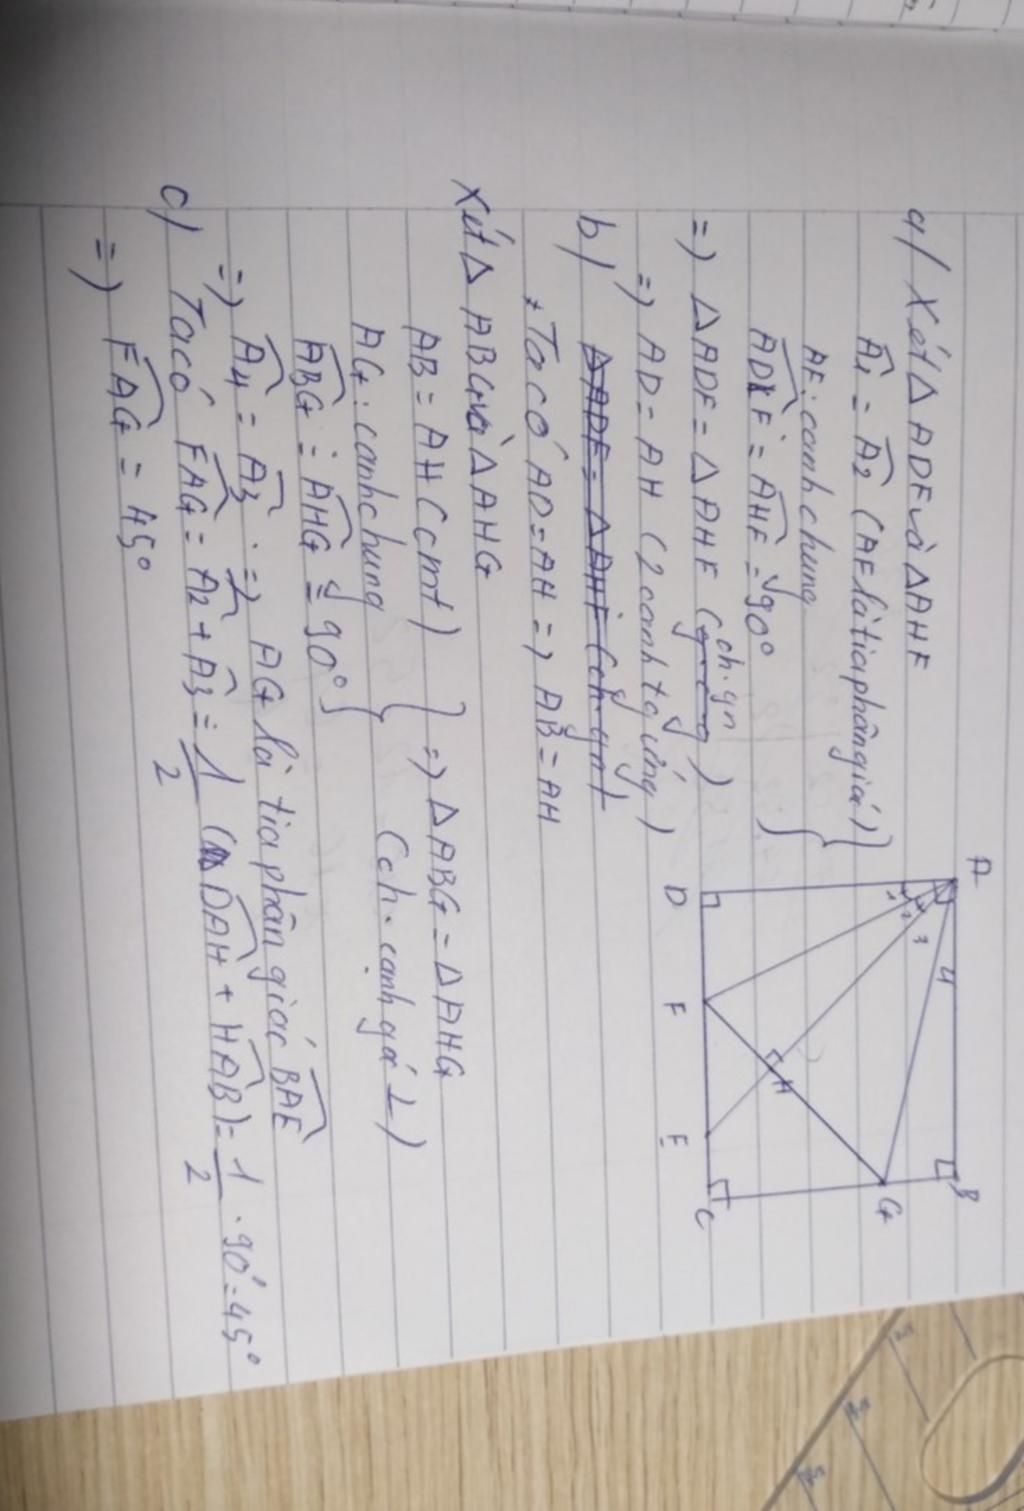 a/ Xét Δ ADF và Δ AHF
Â1 = Â2 (AF là tia phân giác)
AF: cạnh chung
ADF = AHF = 90°
=) Δ ADF = Δ AHF (ch.gn)
=) AD = AH (2 cạnh tg ứng)
b/ ΔADF = ΔAHF (ch.gn)
* Ta có AD = AH =) AB = AH
Xét Δ ABG và Δ AHG
AB = AH (cmt)
AG: cạnh chung
ABG = AHG = 90°
=) Δ ABG = Δ AHG
(ch. cạnh gó ⊥)
=) Â4 = Â3 =) AG là tia phân giác BAE
c/ Ta có FAG = Â2 + Â3 = 1/2 (DAH + HAB) = 1/2 . 90° = 45°
=) FAG = 45°
A
1 2 3 4
B
D F E C
H
G